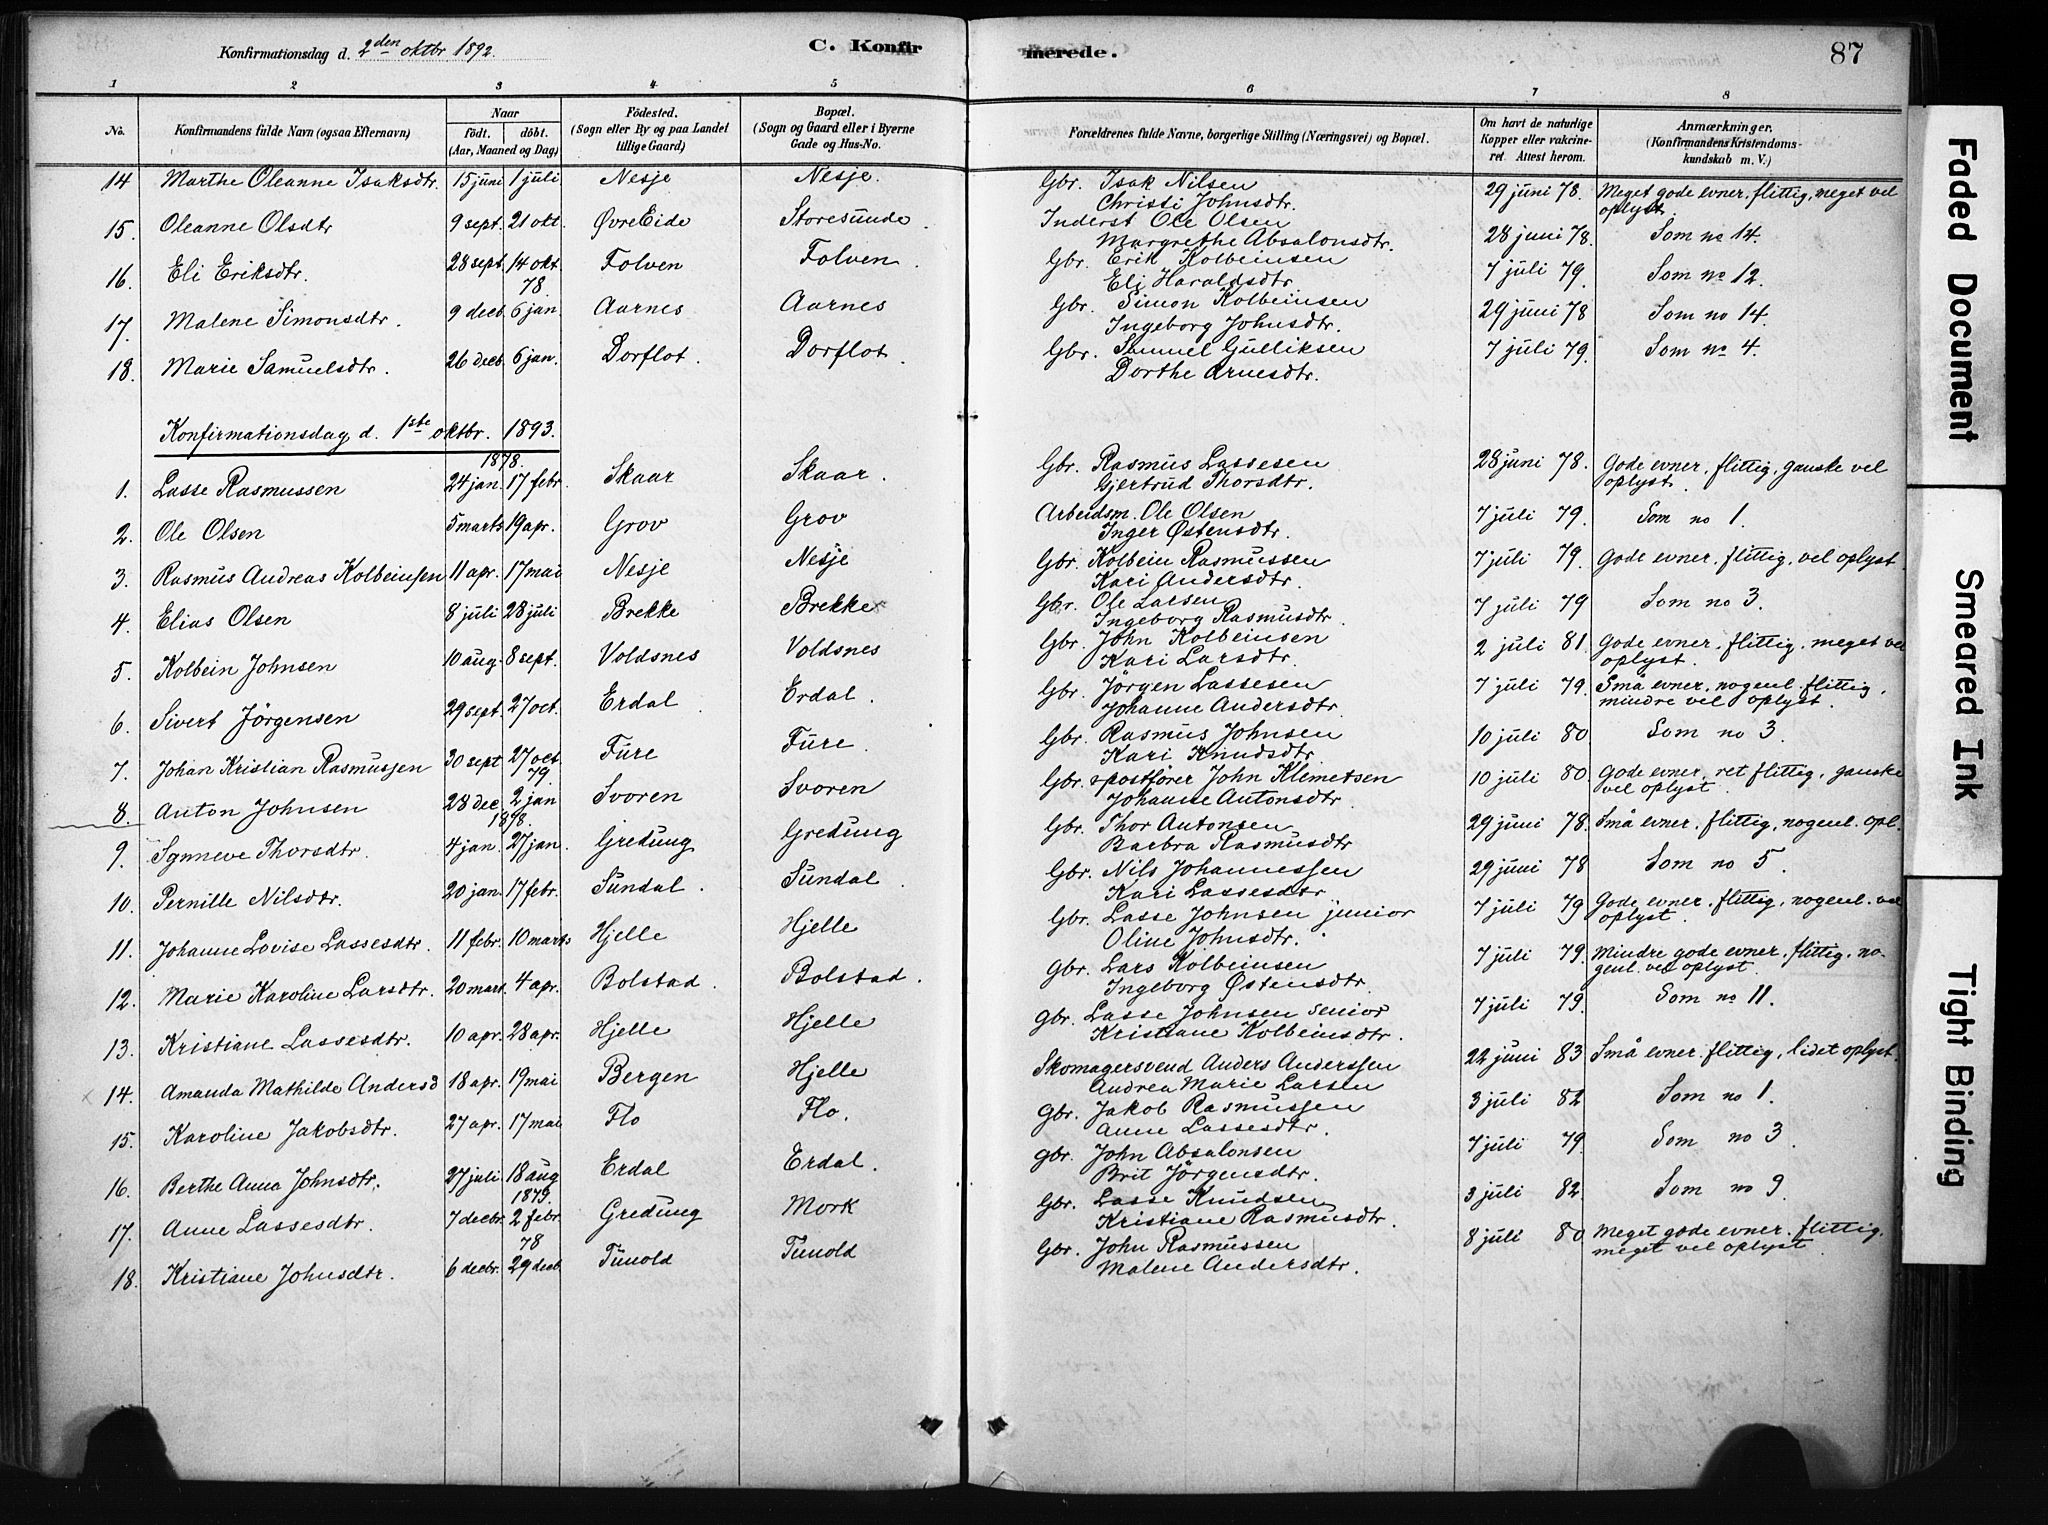 Konfirmationsdag d. 2den oktbr 1892.
C. Konfirmerede.
87
1 2 3 4 5 6 7 8
No.
Konfirmandens fulde Navn (ogsaa Efternavn)
Naar
født. døbt.
(Aar, Maaned og Dag)
Fødested.
(Sogn eller By og paa Landet
tillige Gaard)
Bopæl.
(Sogn og Gaard eller i Byerne
Gade og Hus-No.
Forældrenes fulde Navne, borgerlige Stilling (Næringsvei) og Bopæl.
Om havt de naturlige
Kopper eller vakcine-
ret. Attest herom.
Anmærkninger.
(Konfirmandens Kristendoms-
kundskab m. V.)
14 Marthe Oleanne Isaksdtr. 15 juni 1 juli Nesje Nesje. Gbr. Isak Nilsen 29 juni 78. Meget gode evner, flittig, meget vel
Christi Johnsdtr. oplyst.
15. Oleanne Olsdtr 9 sept. 21 okt. Øvre Eide Storesunde. Inderst Ole Olsen 28 juni 78. Som no 14.
Margrethe Absalonsdtr.
16. Eli Eriksdtr. 28 sept. 14 okt. Folven Folven. Gbr. Erik Kolbeinsen 7 juli 79. Som no 12.
Eli Haraldsdtr.
78.
17. Malene Simonsdtr. 9 decb. 6 jan. Aarnes Aarnes Gbr. Simon Kolbeinsen 29 juni 78 Som no 14.
Ingeborg Johnsdtr.
18. Marie Samuelsdtr. 26 decb. 6 jan. Dorflot. Dorflot. Gbr. Samuel Gulliksen 7 juli 79. Som no 4.
Dorthe Arnesdtr.
Konfirmationsdag d. 1ste oktbr. 1893.
1878.
1. Lasse Rasmussen 24 jan. 17 febr. Skaar Skaar. Gbr. Rasmus Lassesen 28 juni 78. Gode evner, flittig, ganske vel
Gjertrud Thorsdtr. oplyst.
2. Ole Olsen 5 marts 19 apr. Grov Grov Arbeidsm. Ole Olsen 7 juli 79. Som no 1.
Inger Østensdtr.
3. Rasmus Andreas Kolbeinsen 11 apr. 17 mai Nesje Nesje Gbr. Kolbein Rasmussen 7 juli 79. Gode evner, flittig, vel oplyst.
Kari Andersdtr.
4. Elias Olsen 8 juli 28 juli Brekke Brekke Gbr. Ole Larsen 7 juli 79 Som no 3.
Ingeborg Rasmusdtr.
5. Kolbein Johnsen 10 aug. 8 sept. Voldsnes Voldsnes Gbr. John Kolbeinsen 2 juli 81. Gode evner, flittig, meget vel
Kari Larsdtr. oplyst.
6. Sivert Jörgensen 29 sept. 27 oct. Erdal. Erdal. Gbr. Jörgen Lassesen 7 juli 79. Små evner, nogenl. flittig,
Johanne Andersdtr. mindre vel oplyst.
7. Johan Kristian Rasmussen 30 sept 27 oct. Fure Fure. Gbr. Rasmus Johnsen 10 juli 80. Som no 3.
Kari Knudsdtr.
79.
8. Anton Johnsen 28 dec. 2 jan Svoren Svoren Gbr. & postfører John Klemetsen 10 juli 80. Gode evner, ret flittig, ganske
Johanne Antonsdtr. vel oplyst.
1878.
9. Synneve Thorsdtr. 4 jan. 27 jan. Gredung Gredung Gbr. Thor Antonsen 29 juni 78. Små evner, flittig, nogenl. opl.
Barbra Rasmusdtr
10. Pernille Nilsdtr. 20 jan. 17 febr. Sundal. Sundal. Gbr. Nils Johannessen 29 juni 78 Som no 5.
Kari Lassesdtr
11. Johanne Lovise Lassesdtr. 11 febr. 10 marts Hjelle Hjelle Gbr. Lasse Johnsen junior 7 juli 79 Gode evner, flittig, nogenl. vel
Oline Johnsdtr. oplyst.
12. Marie Karoline Larsdtr. 20 mart. 4 apr. Bolstad. Bolstad. Gbr. Lars Kolbeinsen 7 juli 79. Mindre gode evner, flittig, no-
Ingeborg Østensdtr. genl. vel oplyst.
13. Kristiane Lassesdtr. 10 apr. 28 apr. Hjelle Hjelle Gbr. Lasse Johnsen senior 7 juli 79. Som no 11.
Kristiane Kolbeinsdtr.
14. Amanda Mathilde Andersd 18 apr. 19 mai Bergen Hjelle Skomagersvend Anders Anderssen 22 juni 83. Små evner, flittig, lidet oplyst.
Andrea Marie Larsen
15. Karoline Jakobsdtr. 27 apr. 17 mai Flo Flo. Gbr. Jakob Rasmussen 3 juli 82 Som no 1.
Anne Lassesdtr.
16. Berthe Anna Johnsdtr. 27 juli 18 aug Erdal Erdal. Gbr. John Absalonsen 7 juli 79. Som no 3.
Brit Jörgensdtr.
1879.
17. Anne Lassesdtr. 7 decbr. 2 febr. Gredung Mork Gbr. Lasse Knudsen 3 juli 82. Som no 9.
Kristiane Rasmusdtr.
78
18. Kristiane Johnsdtr. 6 decbr. 29 decb Tunold Tunold Gbr. John Rasmussen 8 juli 80 Meget gode evner, flittig,
Malene Andersdtr. meget vel oplyst.
Faded Document
Smeared Ink
Tight Binding